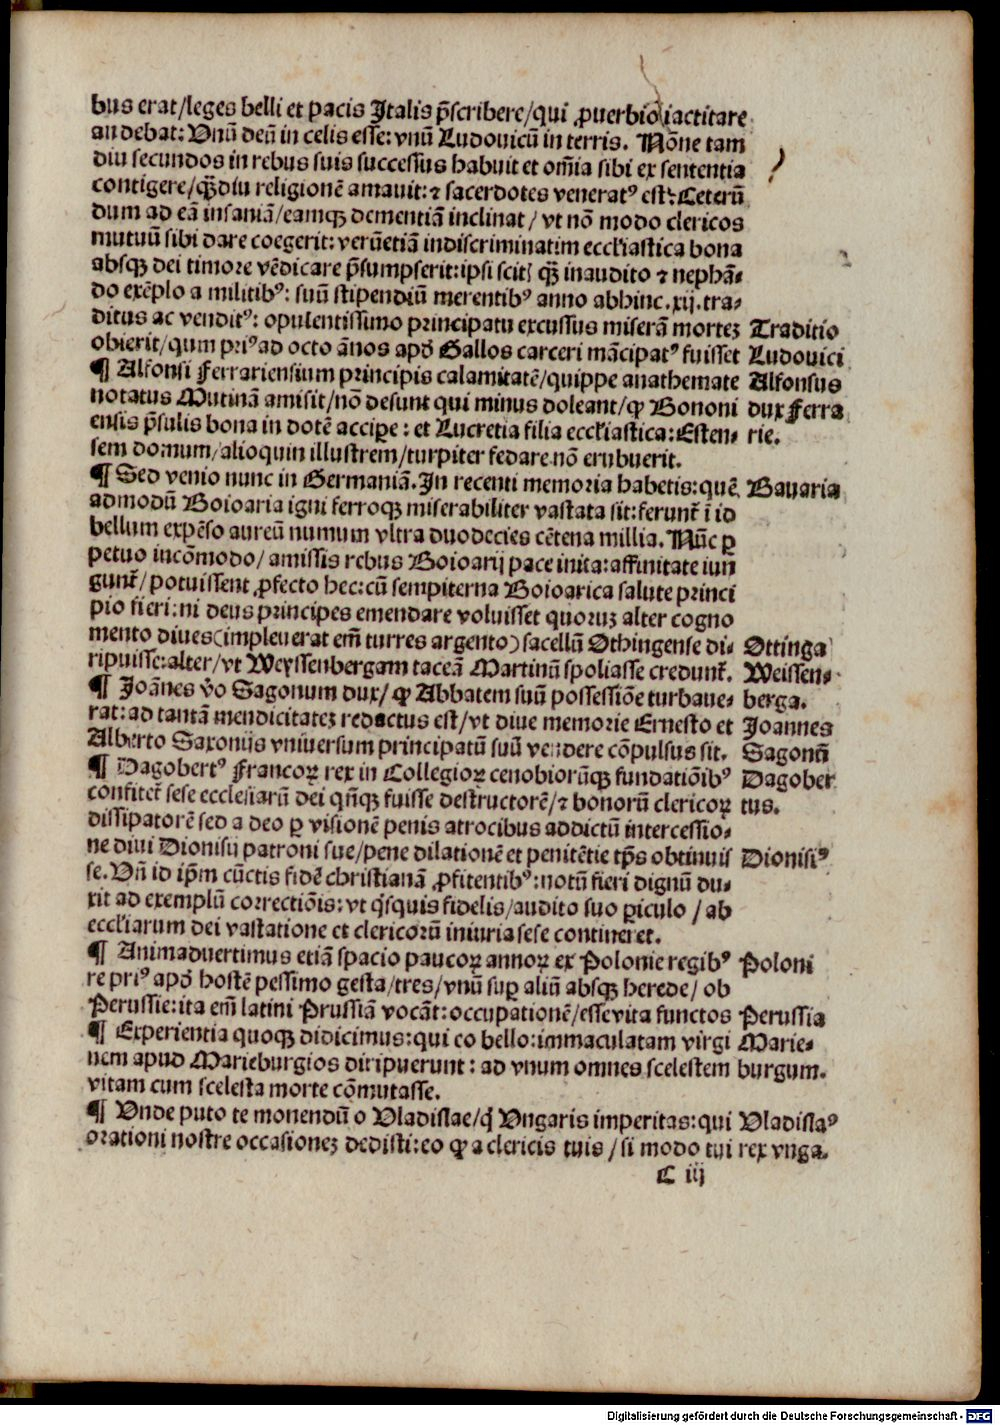 bus erat/leges belli et pacis Italis p̄scribere/qui ꝓuerbio iactitare
audebat: Vnū deū in celis esse: vnū Ludouicū in terris. Nōne tam
diu secundos in rebus suis successus habuit et om̄ia sibi ex sententia
contigere/qȝ̄diu religionē amauit: ⁊ sacerdotes veneratꝰ est: Ceterū
dum ad eā insaniā/eamqȝ dementiā inclinat/ vt nō modo clericos
mutuū sibi dare coegerit: verūetiā indiscriminatim eccl'iastica bona
absqȝ dei timore vēdicare p̄sumpserit: ipsi scitꝭ qȝ̄ inaudito ⁊ nephā-
do exēplo a militibꝰ: suū stipendiū merentibꝰ anno abhinc .xij. tra-
ditus ac venditꝰ: opulentissimo principatu excussus miserā morteȝ Traditio
obierit/qum priꝰ ad octo ānos apd' Gallos carceri mācipatꝰ fuisset Ludouici
¶ Alfonsi Ferrariensium principis calamitatē/quippe anathemate Alfonsus
notatus Mutinā amisit/nō desunt qui minus doleant/ꝙ Bononi dux Ferra
ensis p̄sulis bona in dotē acciꝑe: et Lucretia filia eccl'iastica: Esten- rie.
sem domum/alioquin illustrem/turpiter fedare nō erubuerit.
¶ Sed venio nunc in Germaniā. In recenti memoria habetis: quē Bauaria
admodū Boioaria igni ferroqȝ miserabiliter vastata sit: ferunt̄ i id
bellum expēso aureū numum vltra duodecies cētena millia. Nūc ꝑ
petuo incōmodo/ amissis rebus Boioarij pace inita: affinitate iun
gunt̄/ potuissent ꝓfecto hec: cū sempiterna Boioarica salute princi
pio fieri: ni deus principes emendare voluisset quoruȝ alter cogno
mento diues (impleuerat em̄ turres argento) sacellū Othingense di- Ottinga
ripuisse: alter/ vt Weyssenbergam taceā Martinū spoliasse credunt̄. Weissen-
¶ Joānes v̊o Sagonum dux/ ꝙ Abbatem suū possessiōe turbaue- berga.
rat: ad tantā mendicitateȝ redactus est/vt diue memorie Ernesto et Joannes
Alberto Saxonijs vniuersum principatū suū vendere cōpulsus sit. Sagonū
¶ Dagobertꝰ Francoꝝ rex in Collegioꝝ cenobiorūqȝ fundatiōibꝰ Dagober
confitet̄ sese ecclesiarū dei qn̄qȝ fuisse destructorē/⁊ bonorū clericoꝝ tus.
dissipatorē sed a deo ꝑ visionē penis atrocibus addictū intercessio-
ne diui Dionisij patroni sue/pene dilationē et penitētie tp̄s obtinuis Dionisiꝰ
se. Vn̄ id ip̄m cūctis fidē christianā ꝓfitentibꝰ: notū fieri dignū du-
xit ad exemplū correctiōis: vt q̇squis fidelis/audito suo ꝑiculo /ab
eccl'iarum dei vastatione et clericorū iniuria sese contineret.
¶ Animaduertimus etiā spacio paucoꝝ annoꝝ ex Polonie regibꝰ Poloni
re priꝰ apd' hostē pessimo gesta/tres/vnū suꝑ aliū absqȝ herede/ ob
Perussie: ita em̄ latini Prussiā vocāt: occupationē/esse vita functos Perussia
¶ Experientia quoqȝ didicimus: qui eo bello: immaculatam virgi Marie-
nem apud Marieburgios diripuerunt: ad vnum omnes scelestem burgum.
vitam cum scelesta morte cōmutasse.
¶ Vnde puto te monendū o Vladislae/q̇ Vngaris imperitas: qui Vladislaꝰ
orationi nostre occasioneȝ dedisti: eo ꝙ a clericis tuis /si modo tui rex vnga.
C iij
Digitalisierung gefördert durch die Deutsche Forschungsgemeinschaft - DFG